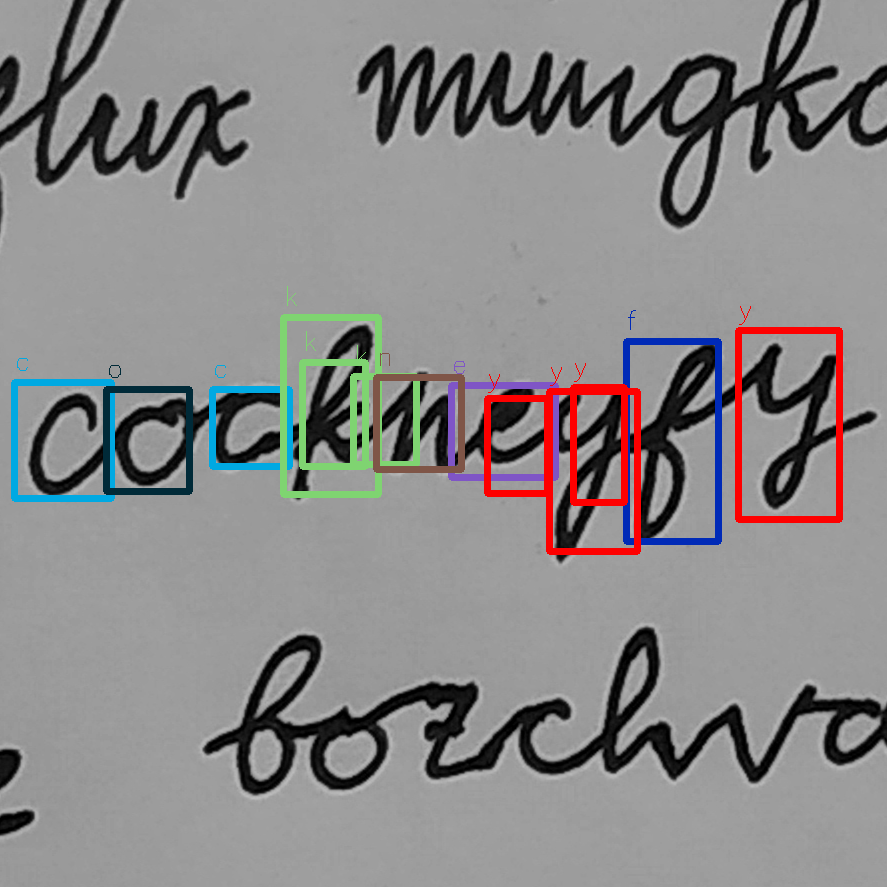 flux mungko
c o c k k k n e y y y f y
cockneyfy
bozchva